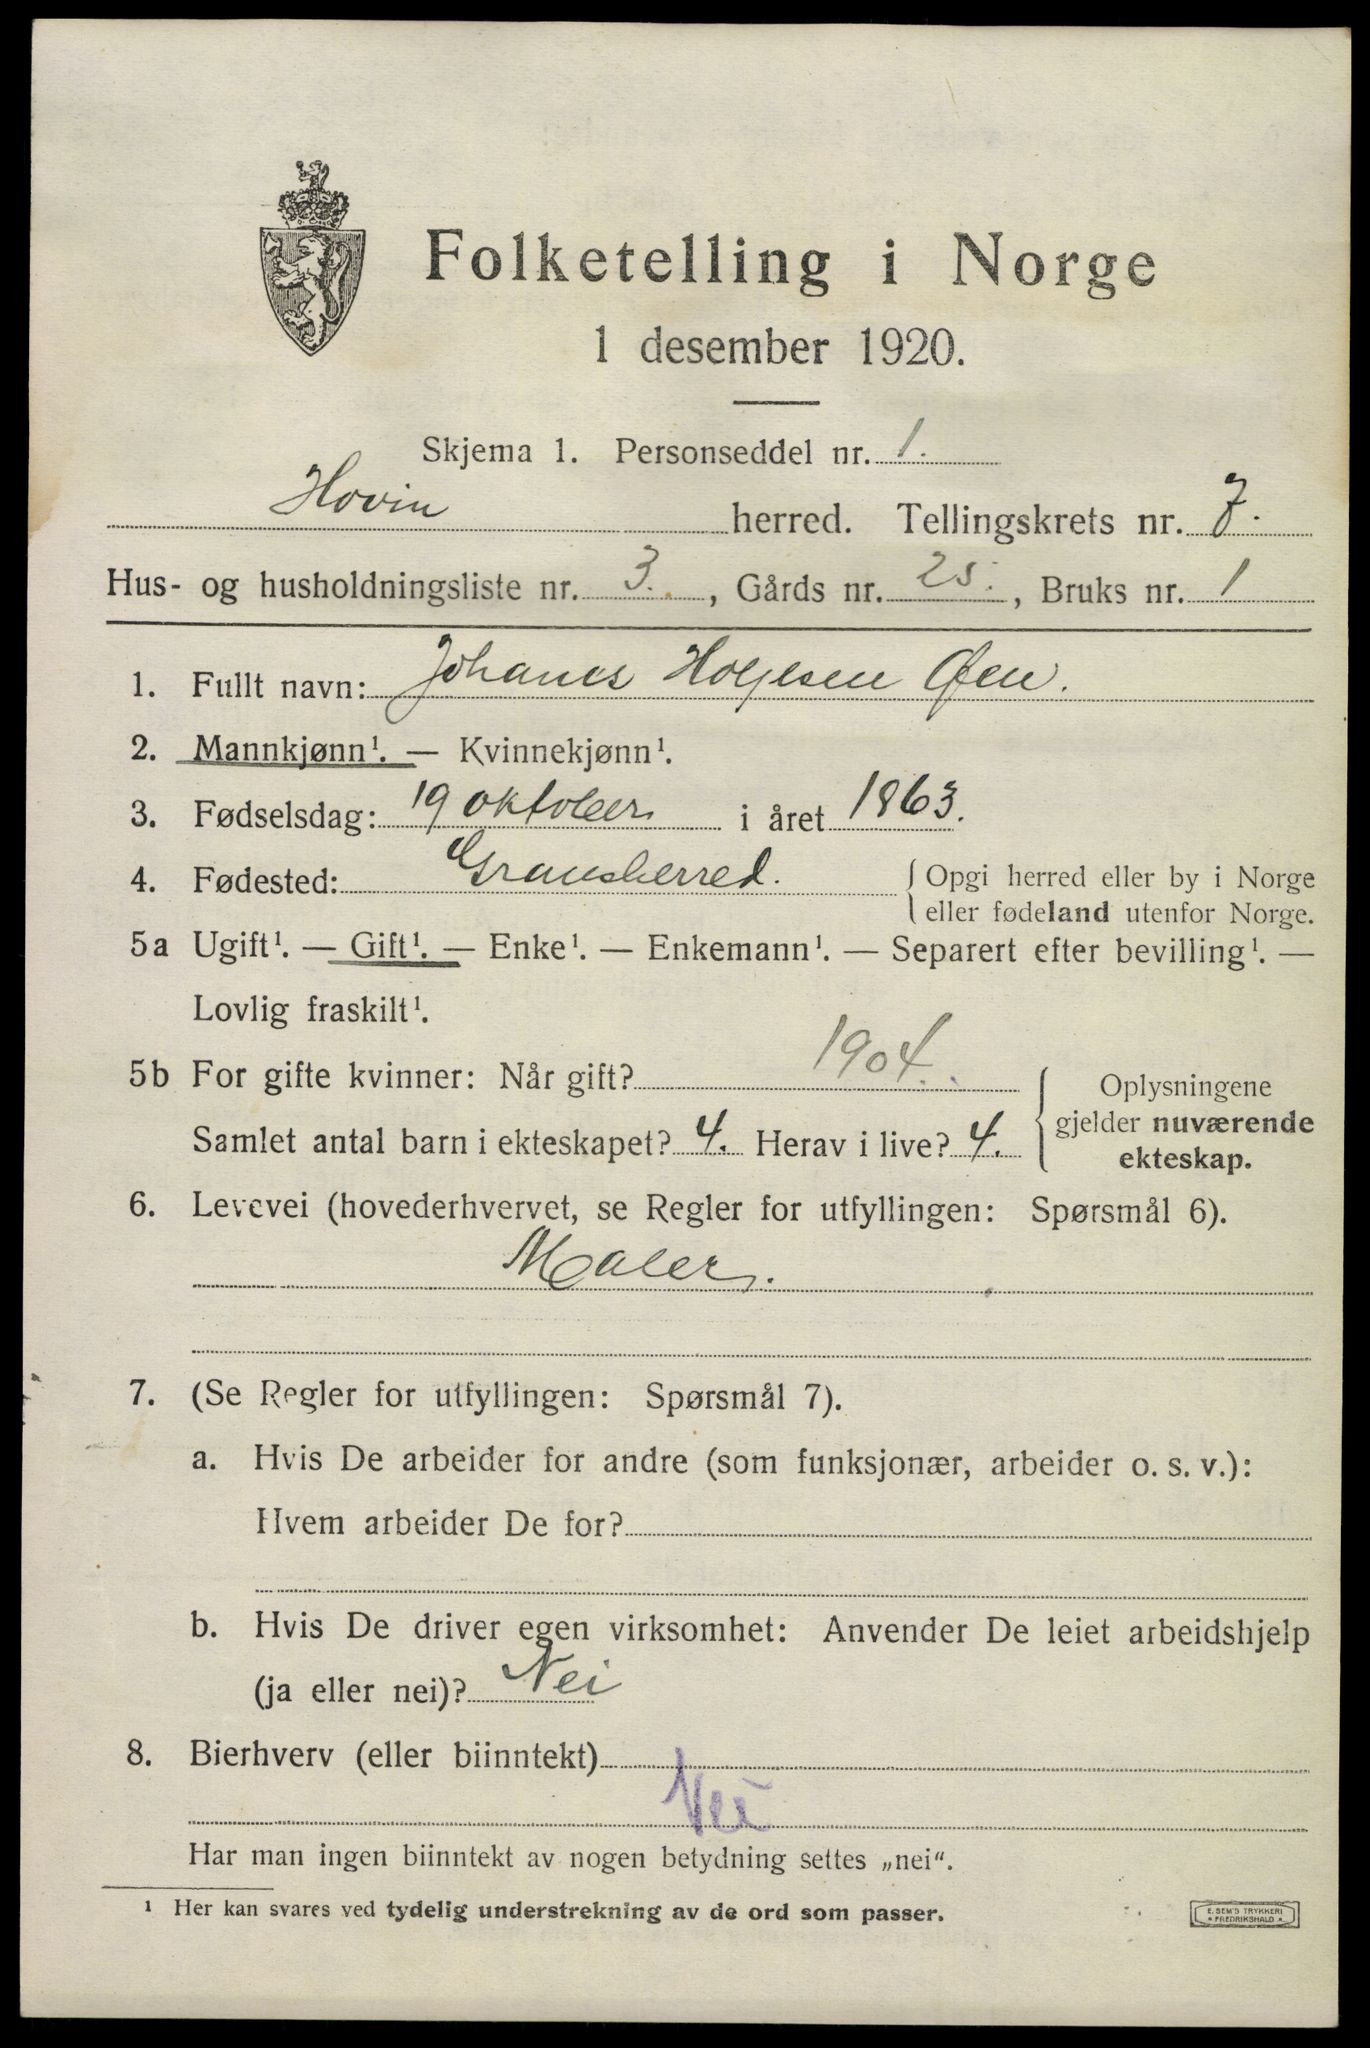 Folketelling i Norge
1 desember 1920.
Skjema 1. Personseddel nr. 1.
Hovin herred. Tellingskrets nr. 7.
Hus- og husholdningsliste nr. 3., Gårds nr. 25., Bruks nr. 1
1. Fullt navn: Johanes Holjesen Øen.
2. Mannkjønn¹. — Kvinnekjønn¹.
3. Fødselsdag: 19 oktober i året 1863.
4. Fødested: Gransherred. { Opgi herred eller by i Norge
eller fødeland utenfor Norge.
5a Ugift¹. — Gift¹. — Enke¹. — Enkemann¹. — Separert efter bevilling¹. —
Lovlig fraskilt¹.
5b For gifte kvinner: Når gift? 1904.
Samlet antal barn i ekteskapet? 4. Herav i live? 4.
Oplysningene
gjelder nuværende
ekteskap.
6. Levevei (hovederhvervet, se Regler for utfyllingen: Spørsmål 6).
Maler.
7. (Se Regler for utfyllingen: Spørsmål 7).
a. Hvis De arbeider for andre (som funksjonær, arbeider o. s. v.):
Hvem arbeider De for?
b. Hvis De driver egen virksomhet: Anvender De leiet arbeidshjelp
(ja eller nei)? Nei
8. Bierhverv (eller biinntekt)
Nei
Har man ingen biinntekt av nogen betydning settes „nei“.
¹ Her kan svares ved tydelig understrekning av de ord som passer.
E. SEM'S TRYKKERI
* FREDRIKSHALD *